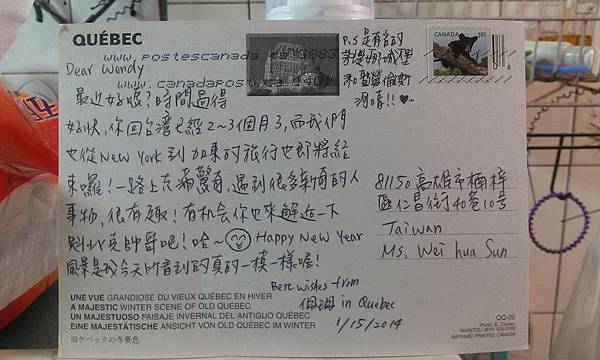 QUÉBEC
www.postescanada
www.canadapost
CANADA
185
P.S 是有名的
芳堤娜城堡
和聖勞倫斯
河唷!!
Dear Wendy
最近好嗎?時間過得
好快,你回台灣已經2~3個月了,而我們
也從New York到加東的旅行也即將結
束囉!一路上充滿驚奇,遇到很多新的人
事物,很有趣!有机会你也來解近一下
魁北克帥哥吧!哈~ Happy New Year
風景是我今天所看到的真的一模一樣喔!
Best wishes from
in Quebec
1/15/2014
81150 高雄市楠梓
區仁昌街40巷10号
Taiwan
Ms. Wei hua Sun
UNE VUE GRANDIOSE DU VIEUX QUÉBEC EN HIVER
A MAJESTIC WINTER SCENE OF OLD QUÉBEC
UN MAJESTUOSO PAISAJE INVERNAL DEL ANTIGUO QUÉBEC
EINE MAJESTÄTISCHE ANSICHT VON OLD QUÉBEC IM WINTER
旧ケベックの冬景色
QQ-00